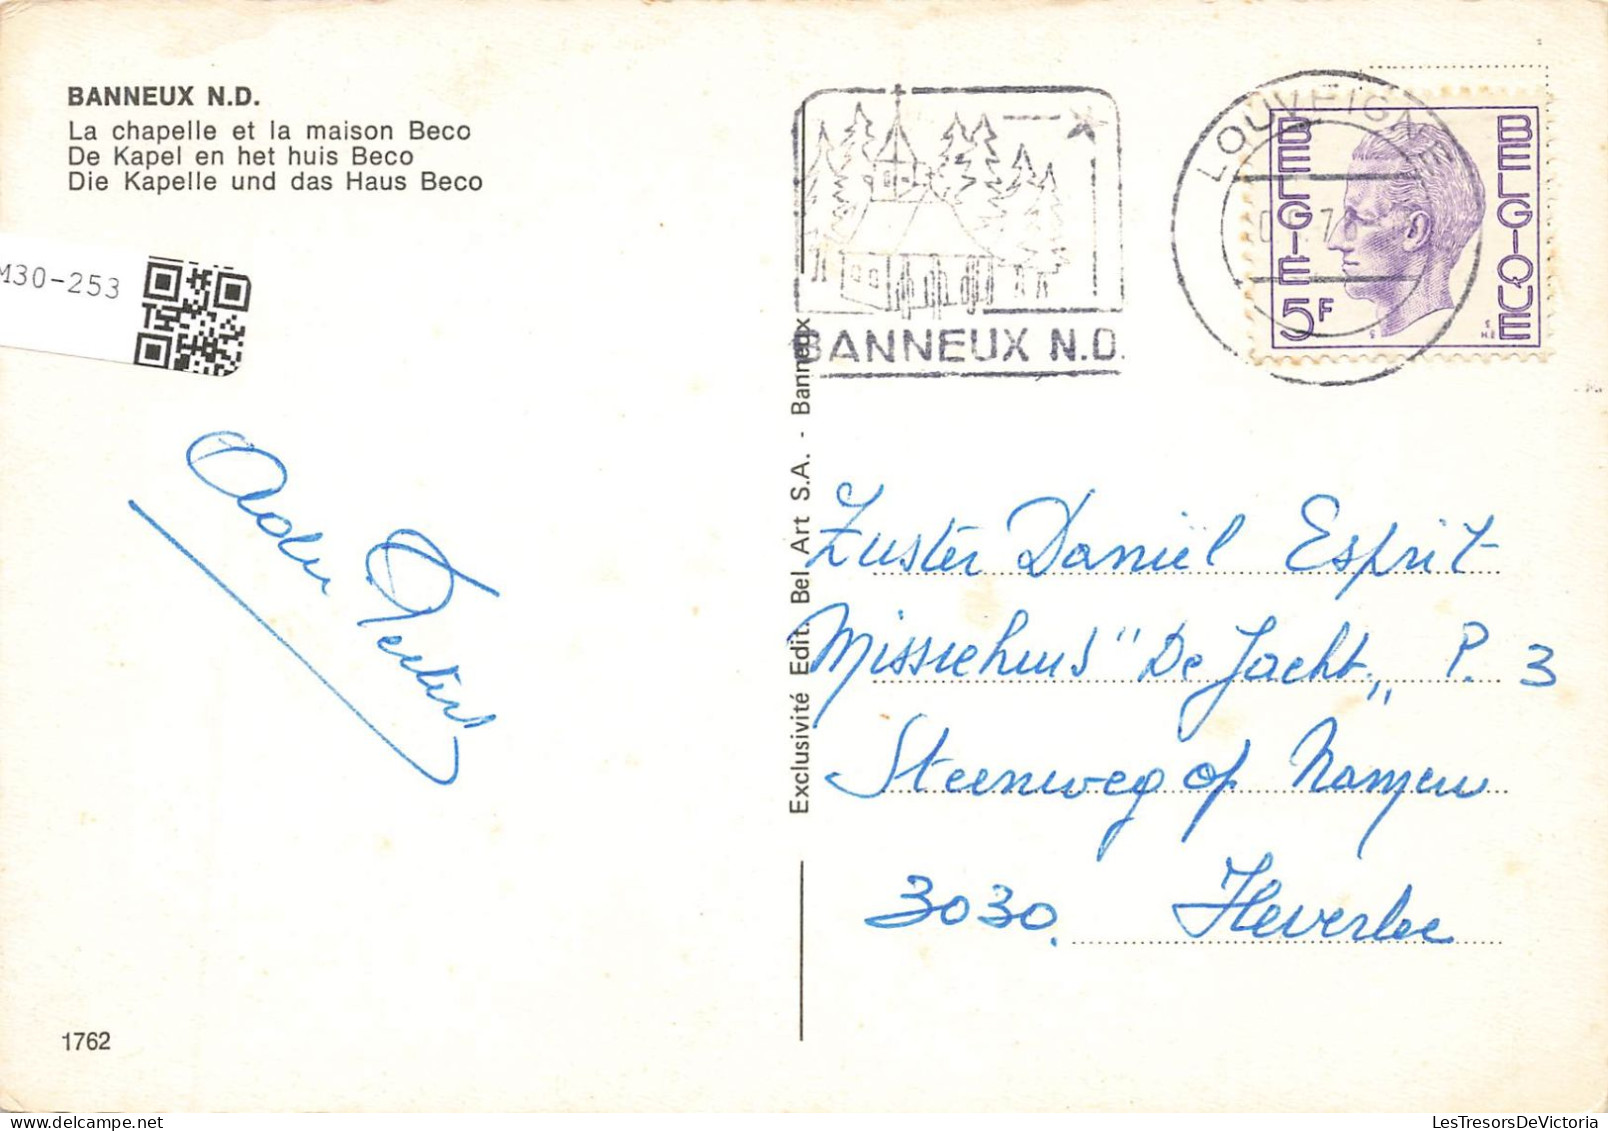 BANNEUX N.D.
La chapelle et la maison Beco
De Kapel en het huis Beco
Die Kapelle und das Haus Beco
M30-253
BANNEUX N.D.
LOUVEIGNE
BELGIE
BELGIQUE
5F
Exclusivité Edit. Bel Art S.A. - Banneux
Zuster Daniël Esprit
Missiehuis "De Jacht" P. 3
Steenweg op Namen
3030. Heverlee
1762
LesTresorsDeVictoria